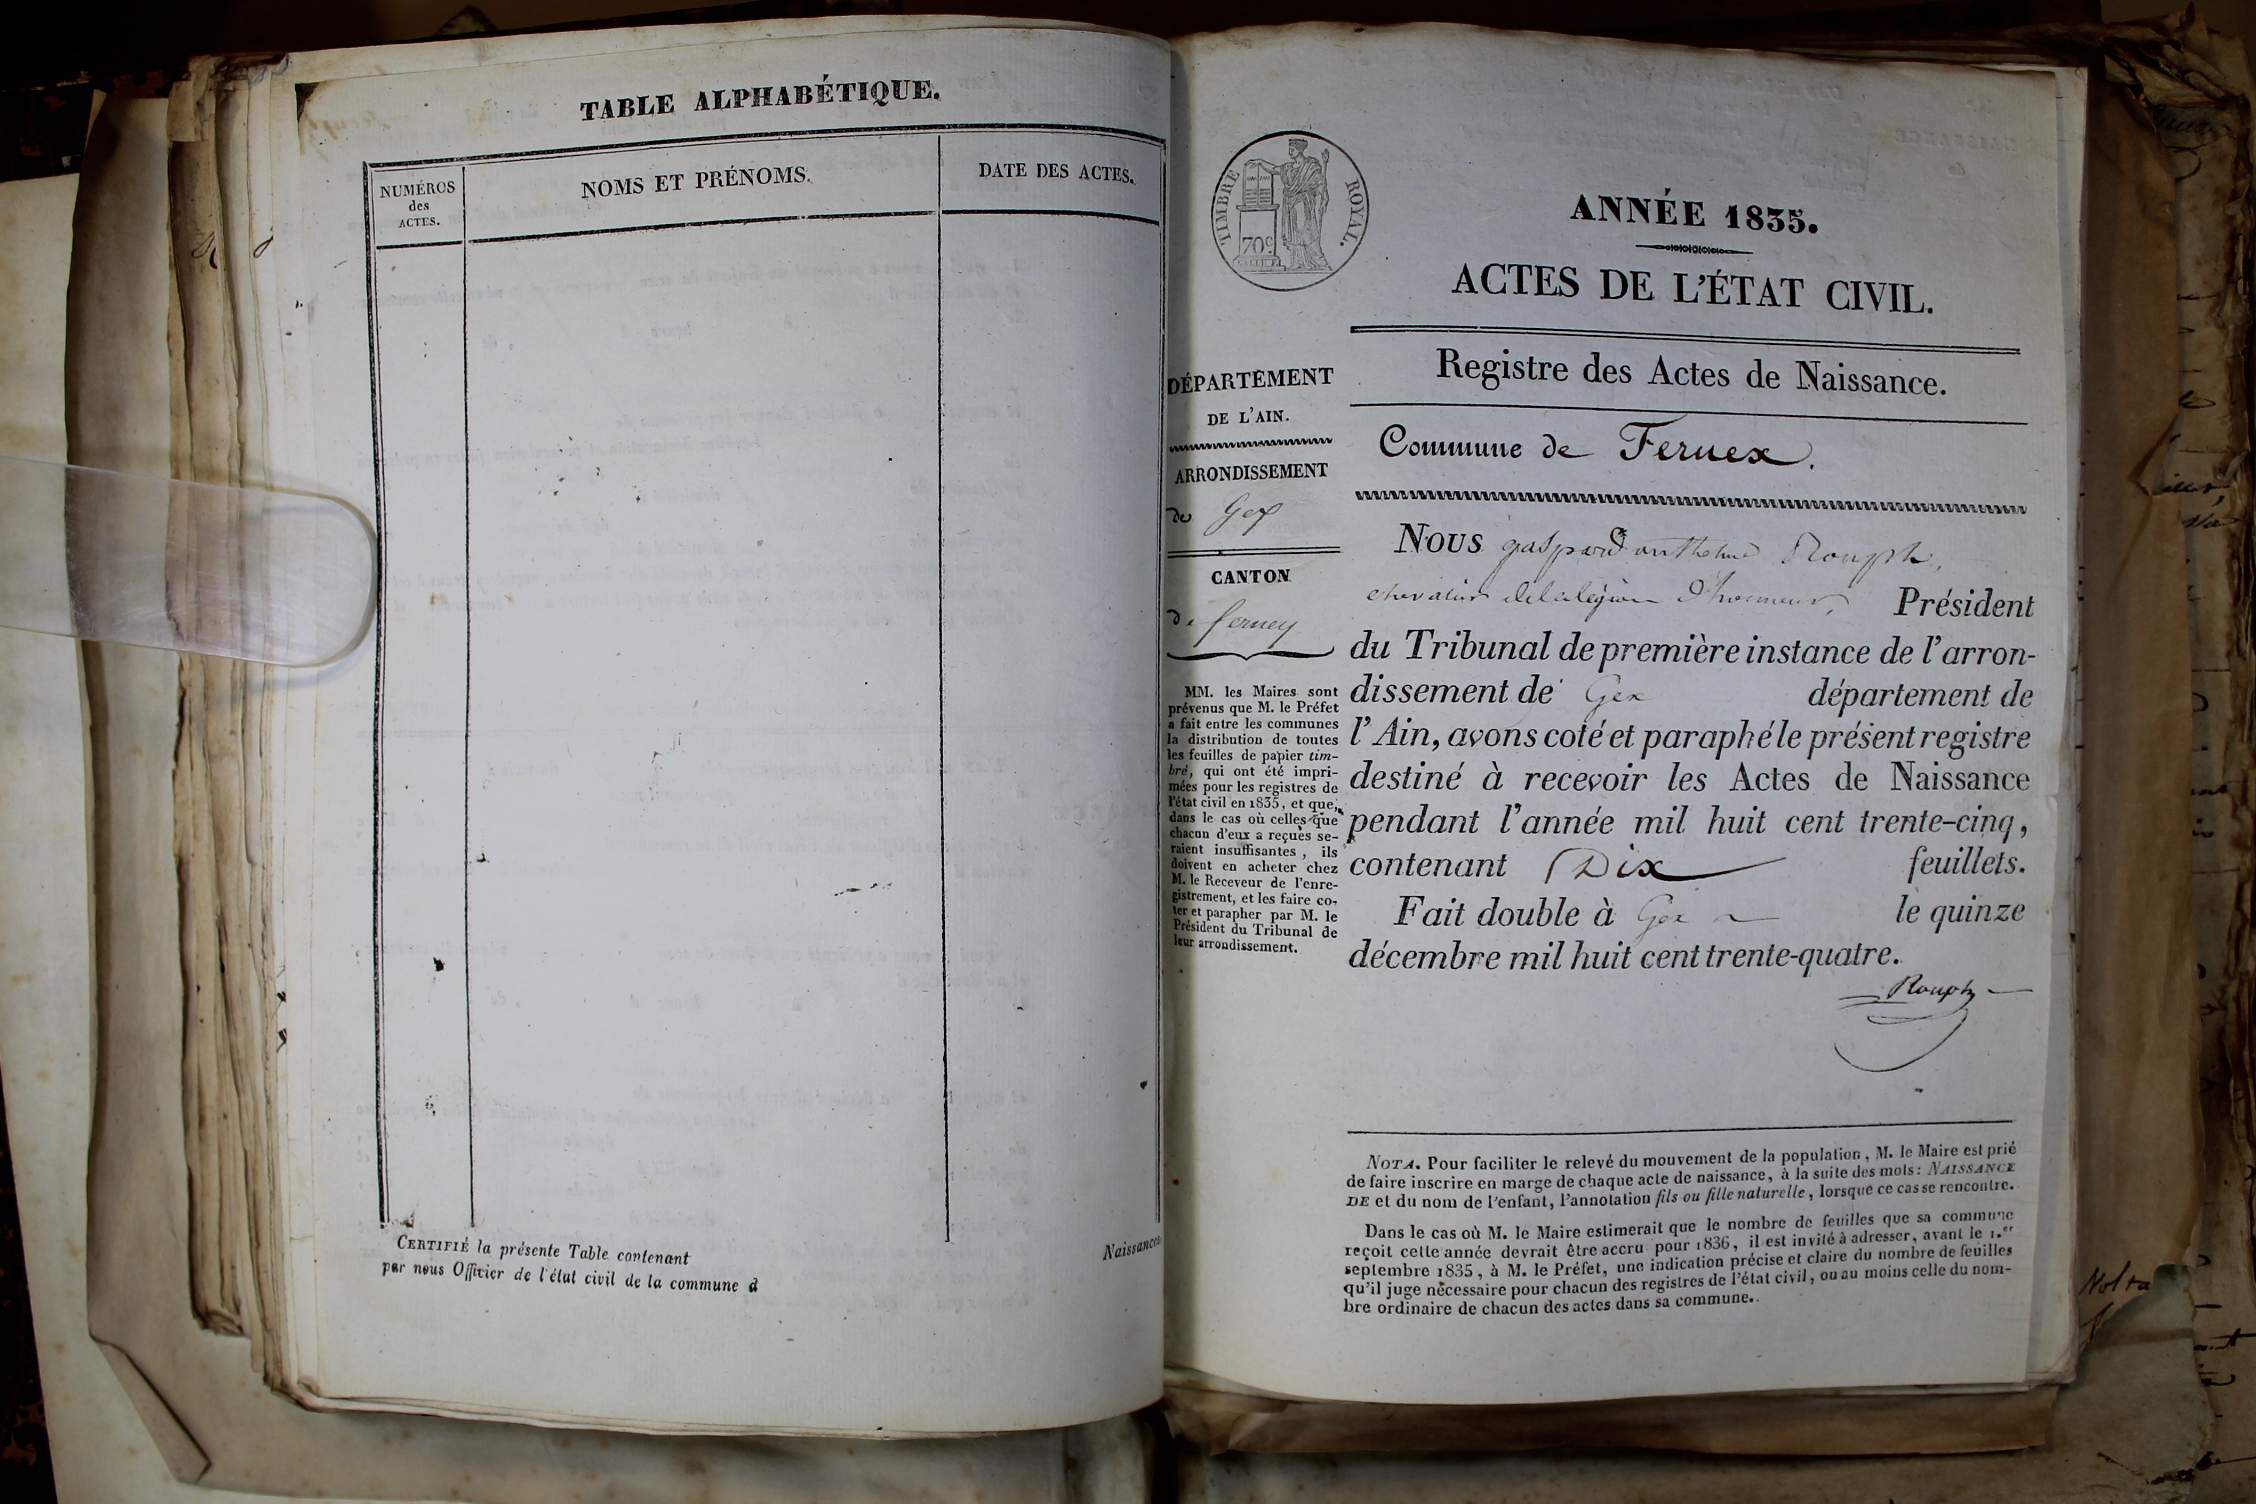 TABLE ALPHABÉTIQUE.
NUMÉROS
des
ACTES.
NOMS ET PRÉNOMS.
DATE DES ACTES.
CERTIFIÉ la présente Table contenant
par nous Officier de l'état civil de la commune d
Naissances
TIMBRE ROYAL.
70c
ANNÉE 1835.
ACTES DE L'ÉTAT CIVIL.
Registre des Actes de Naissance.
DÉPARTEMENT
DE L'AIN.
ARRONDISSEMENT
de Gex
CANTON
de ferney
MM. les Maires sont
prévenus que M. le Préfet
a fait entre les communes
la distribution de toutes
les feuilles de papier tim-
bré, qui ont été impri-
mées pour les registres de
l'état civil en 1835, et que,
dans le cas où celles que
chacun d'eux a reçues se-
raient insuffisantes, ils
doivent en acheter chez
M. le Receveur de l'enre-
gistrement, et les faire co-
ter et parapher par M. le
Président du Tribunal de
leur arrondissement.
Commune de Fernex.
Nous gaspard anthelme Rouph,
chevalier de la legion d'honneur, Président
du Tribunal de première instance de l'arron-
dissement de Gex département de
l'Ain, avons coté et paraphé le présent registre
destiné à recevoir les Actes de Naissance
pendant l'année mil huit cent trente-cinq,
contenant Dix feuillets.
Fait double à Gex le quinze
décembre mil huit cent trente-quatre.
Rouph
NOTA. Pour faciliter le relevé du mouvement de la population, M. le Maire est prié
de faire inscrire en marge de chaque acte de naissance, à la suite des mots: NAISSANCE
DE et du nom de l'enfant, l'annotation fils ou fille naturelle, lorsque ce cas se rencontre.
Dans le cas où M. le Maire estimerait que le nombre de feuilles que sa commune
reçoit cette année devrait être accru pour 1836, il est invité à adresser, avant le 1.er
septembre 1835, à M. le Préfet, une indication précise et claire du nombre de feuilles
qu'il juge nécessaire pour chacun des registres de l'état civil, ou au moins celle du nom-
bre ordinaire de chacun des actes dans sa commune.